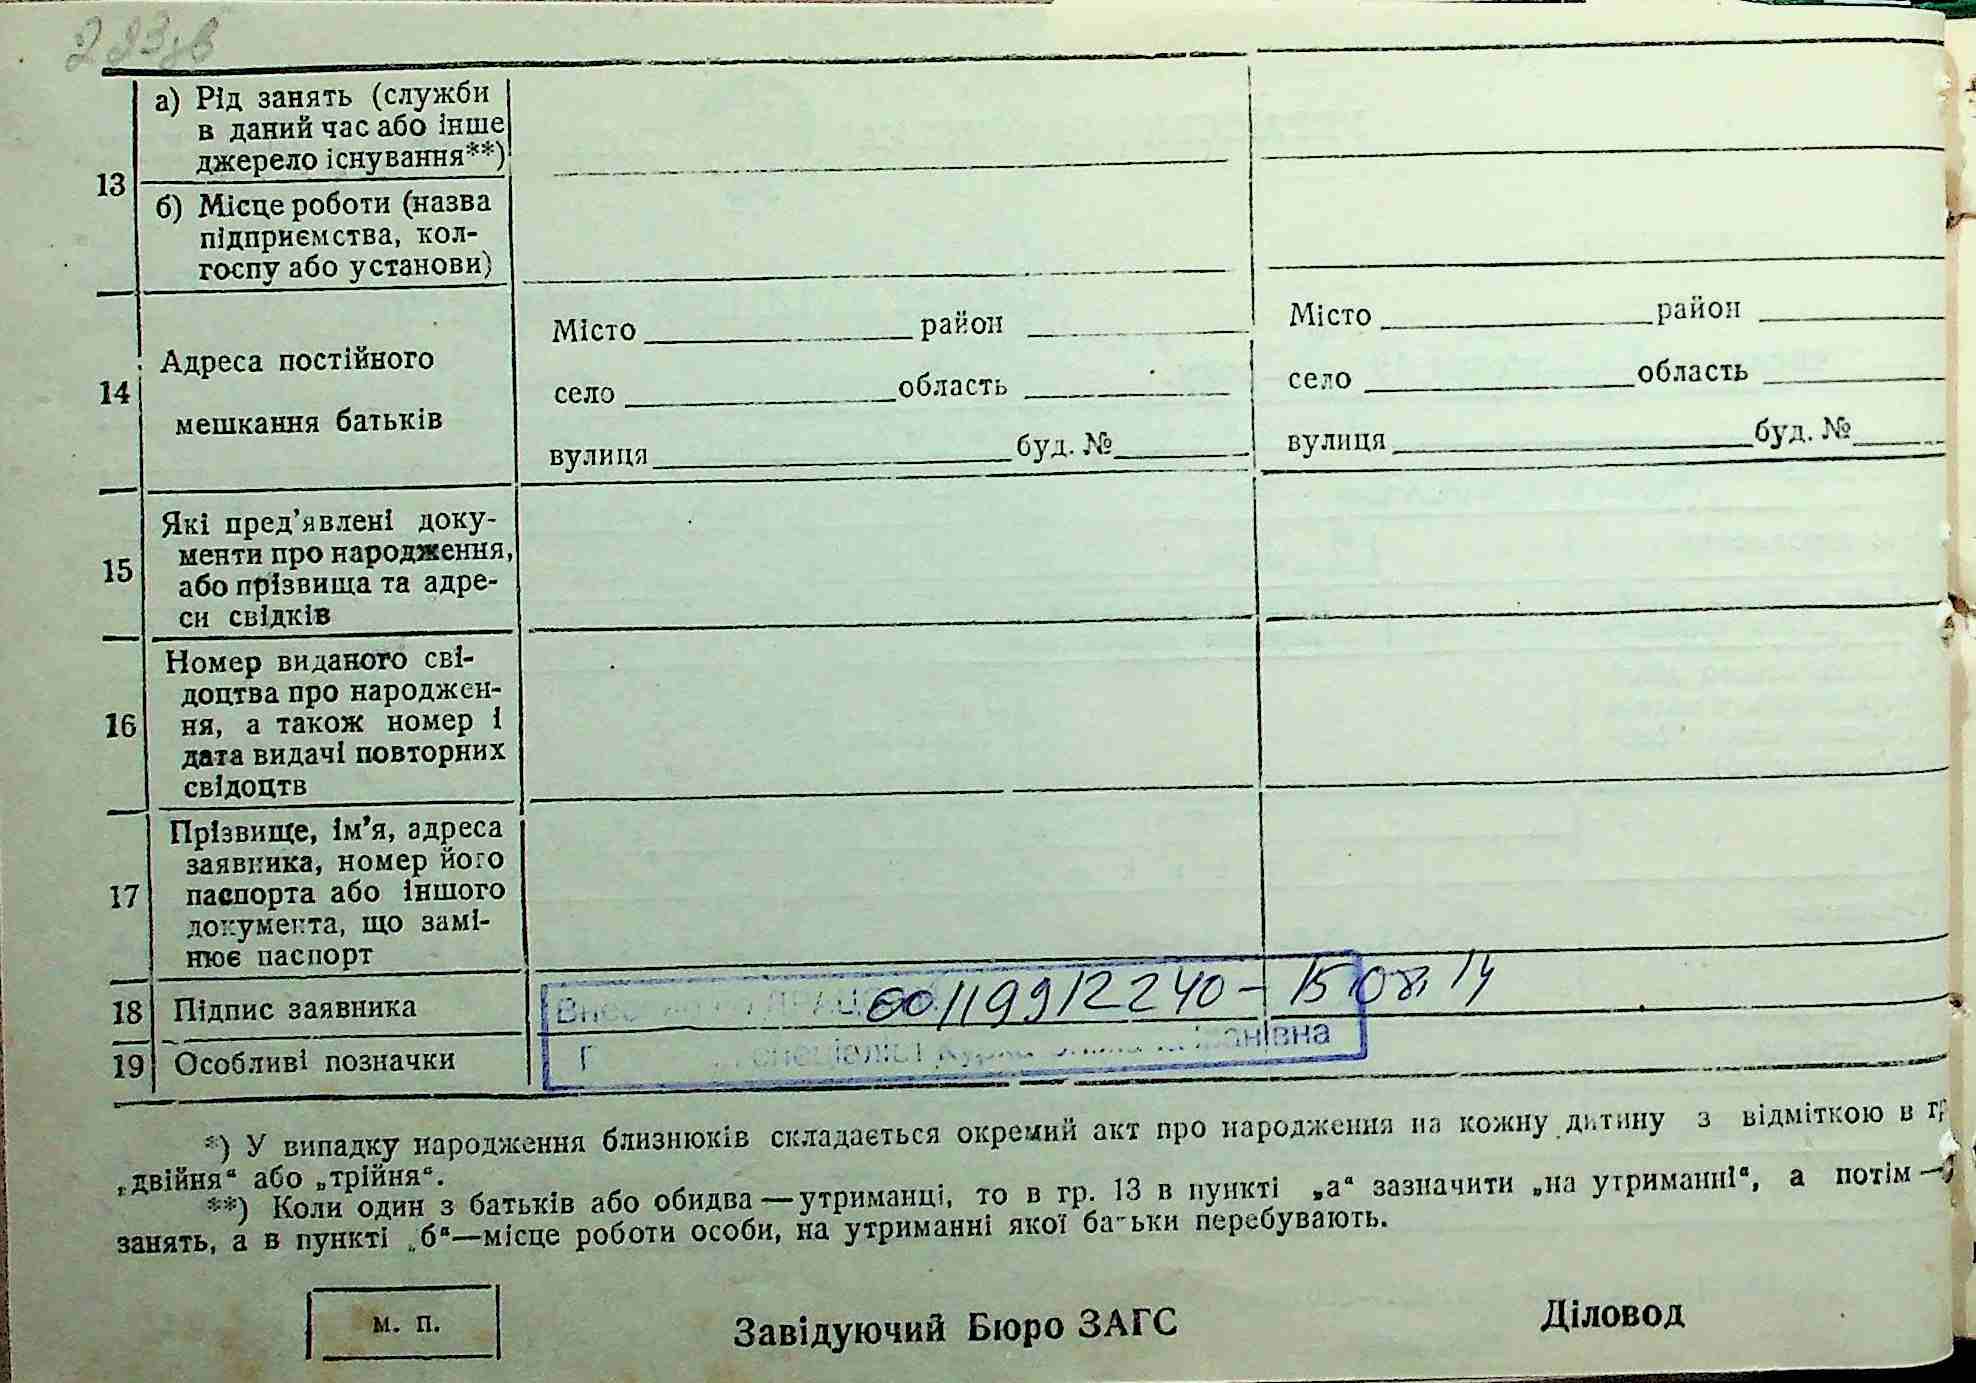 223зв
13
а) Рід занять (служби
в даний час або інше
джерело існування**)
б) Місце роботи (назва
підприємства, кол-
госпу або установи)
14
Адреса постійного
мешкання батьків
Місто район
село область
вулиця буд. №
Місто район
село область
вулиця буд. №
15
Які пред'явлені доку-
менти про народження,
або прізвища та адре-
си свідків
16
Номер виданого сві-
доцтва про народжен-
ня, а також номер і
дата видачі повторних
свідоцтв
17
Прізвище, ім'я, адреса
заявника, номер його
паспорта або іншого
документа, що замі-
нює паспорт
18 Підпис заявника
00119912240 - 15.08.14
19 Особливі позначки
спеціаліст
*) У випадку народження близнюків складається окремий акт про народження на кожну дитину з відміткою в гр
„двійня“ або „трійня“.
**) Коли один з батьків або обидва—утриманці, то в гр. 13 в пункті „а“ зазначити „на утриманні“, а потім —
занять, а в пункті „б“—місце роботи особи, на утриманні якої батьки перебувають.
м. п.
Завідуючий Бюро ЗАГС
Діловод